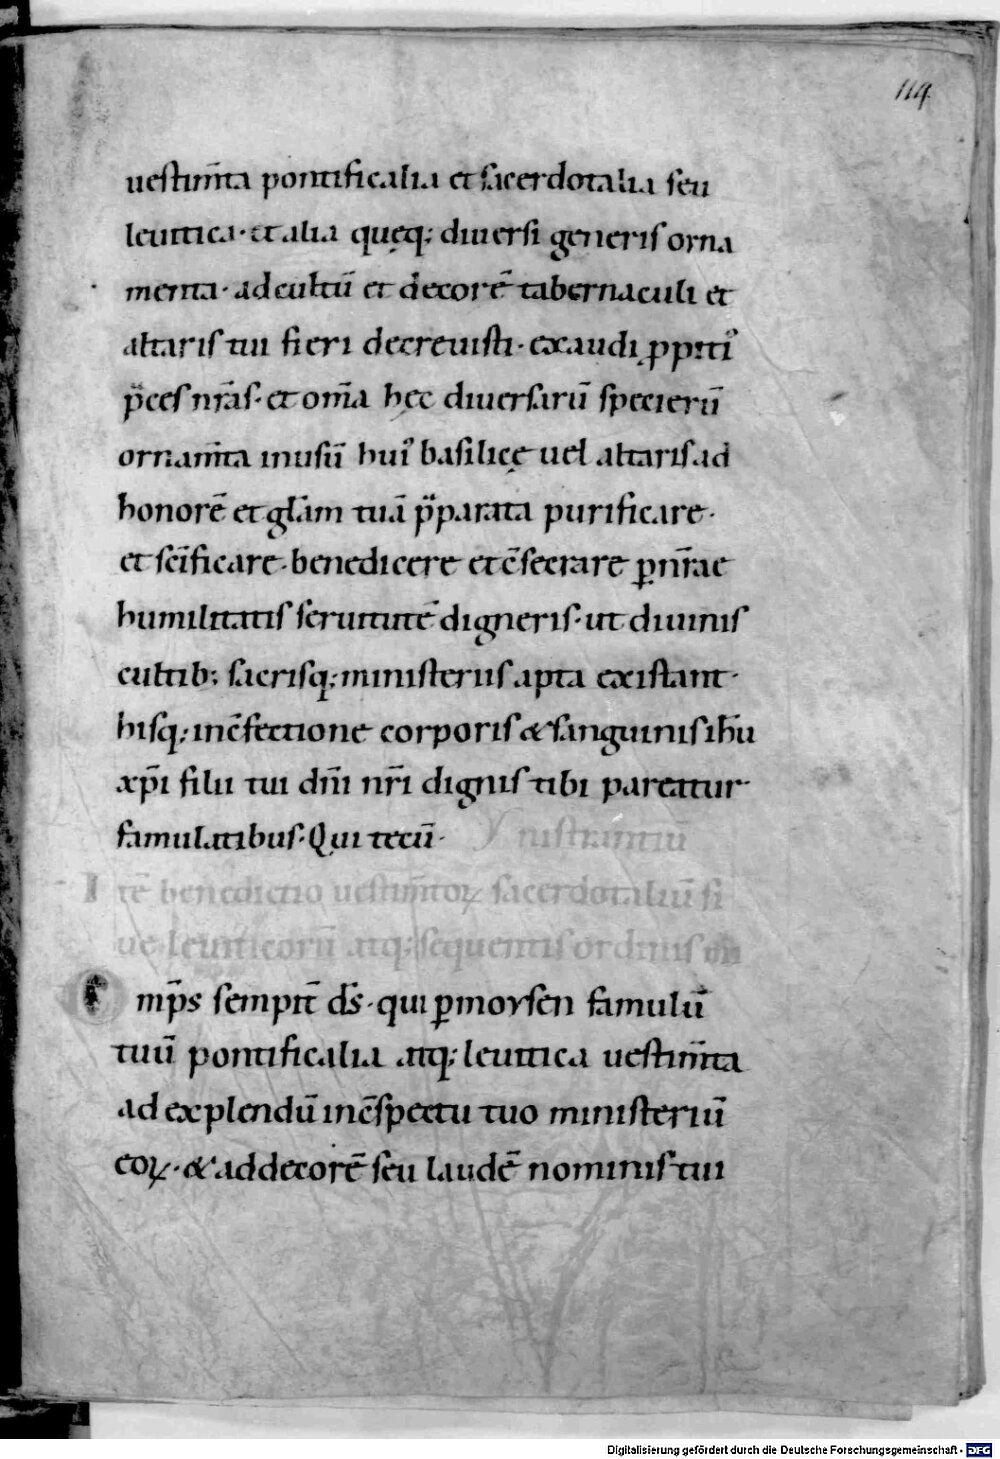 114
uestim̄ta pontificalia et sacerdotalia seu
leuitica· et alia quęq; diuersi generis orna
menta· ad cultū et decorē tabernaculi et
altaris tui fieri decreuisti· exaudi ppiti᾽
p̄ces nr̄as· et om̄a hęc diuersarū specierū
ornam̄ta inusū hui᾽ basilicę uel altaris ad
honorē et gl̄am tuā p̄parata purificare·
et sc̄ificare· benedicere et c̄secrare ꝑ nr̄ae
humilitatis seruitutē digneris· ut diuinis
cultib; sacrisq; ministeriis apta existant·
hisq; inc̄fectione corporis & sanguinis ih̄u
xp̄i filii tui dn̄i nr̄i dignis tibi pareatur
famulatibus· Qui tecū·
nistrantiū
Itē benedictio uestim̄toꝝ sacerdotaliū si
ue leuiticorū atq; sequentis ordinis
mp̄s sempit̄ ds̄· qui ꝑ moysen famulū
tuū pontificalia atq; leuitica uestim̄ta
ad explendū inc̄spectu tuo ministeriū
eoꝝ· & ad decorē seu laudē nominis tui
Digitalisierung gefördert durch die Deutsche Forschungsgemeinschaft - DFG